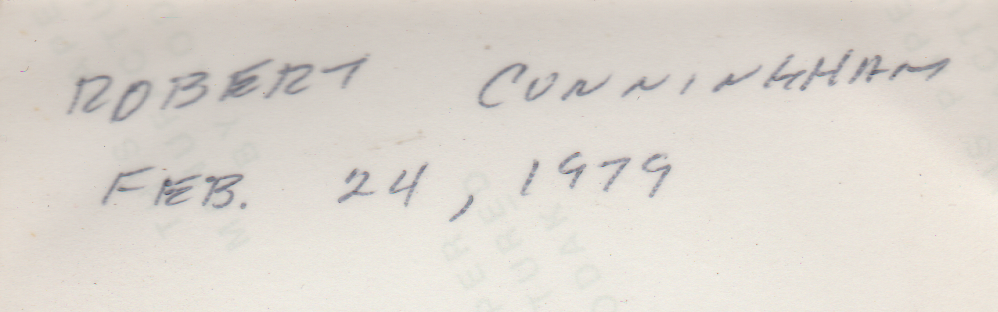 ROBERT CUNNINGHAM
FEB. 24, 1979